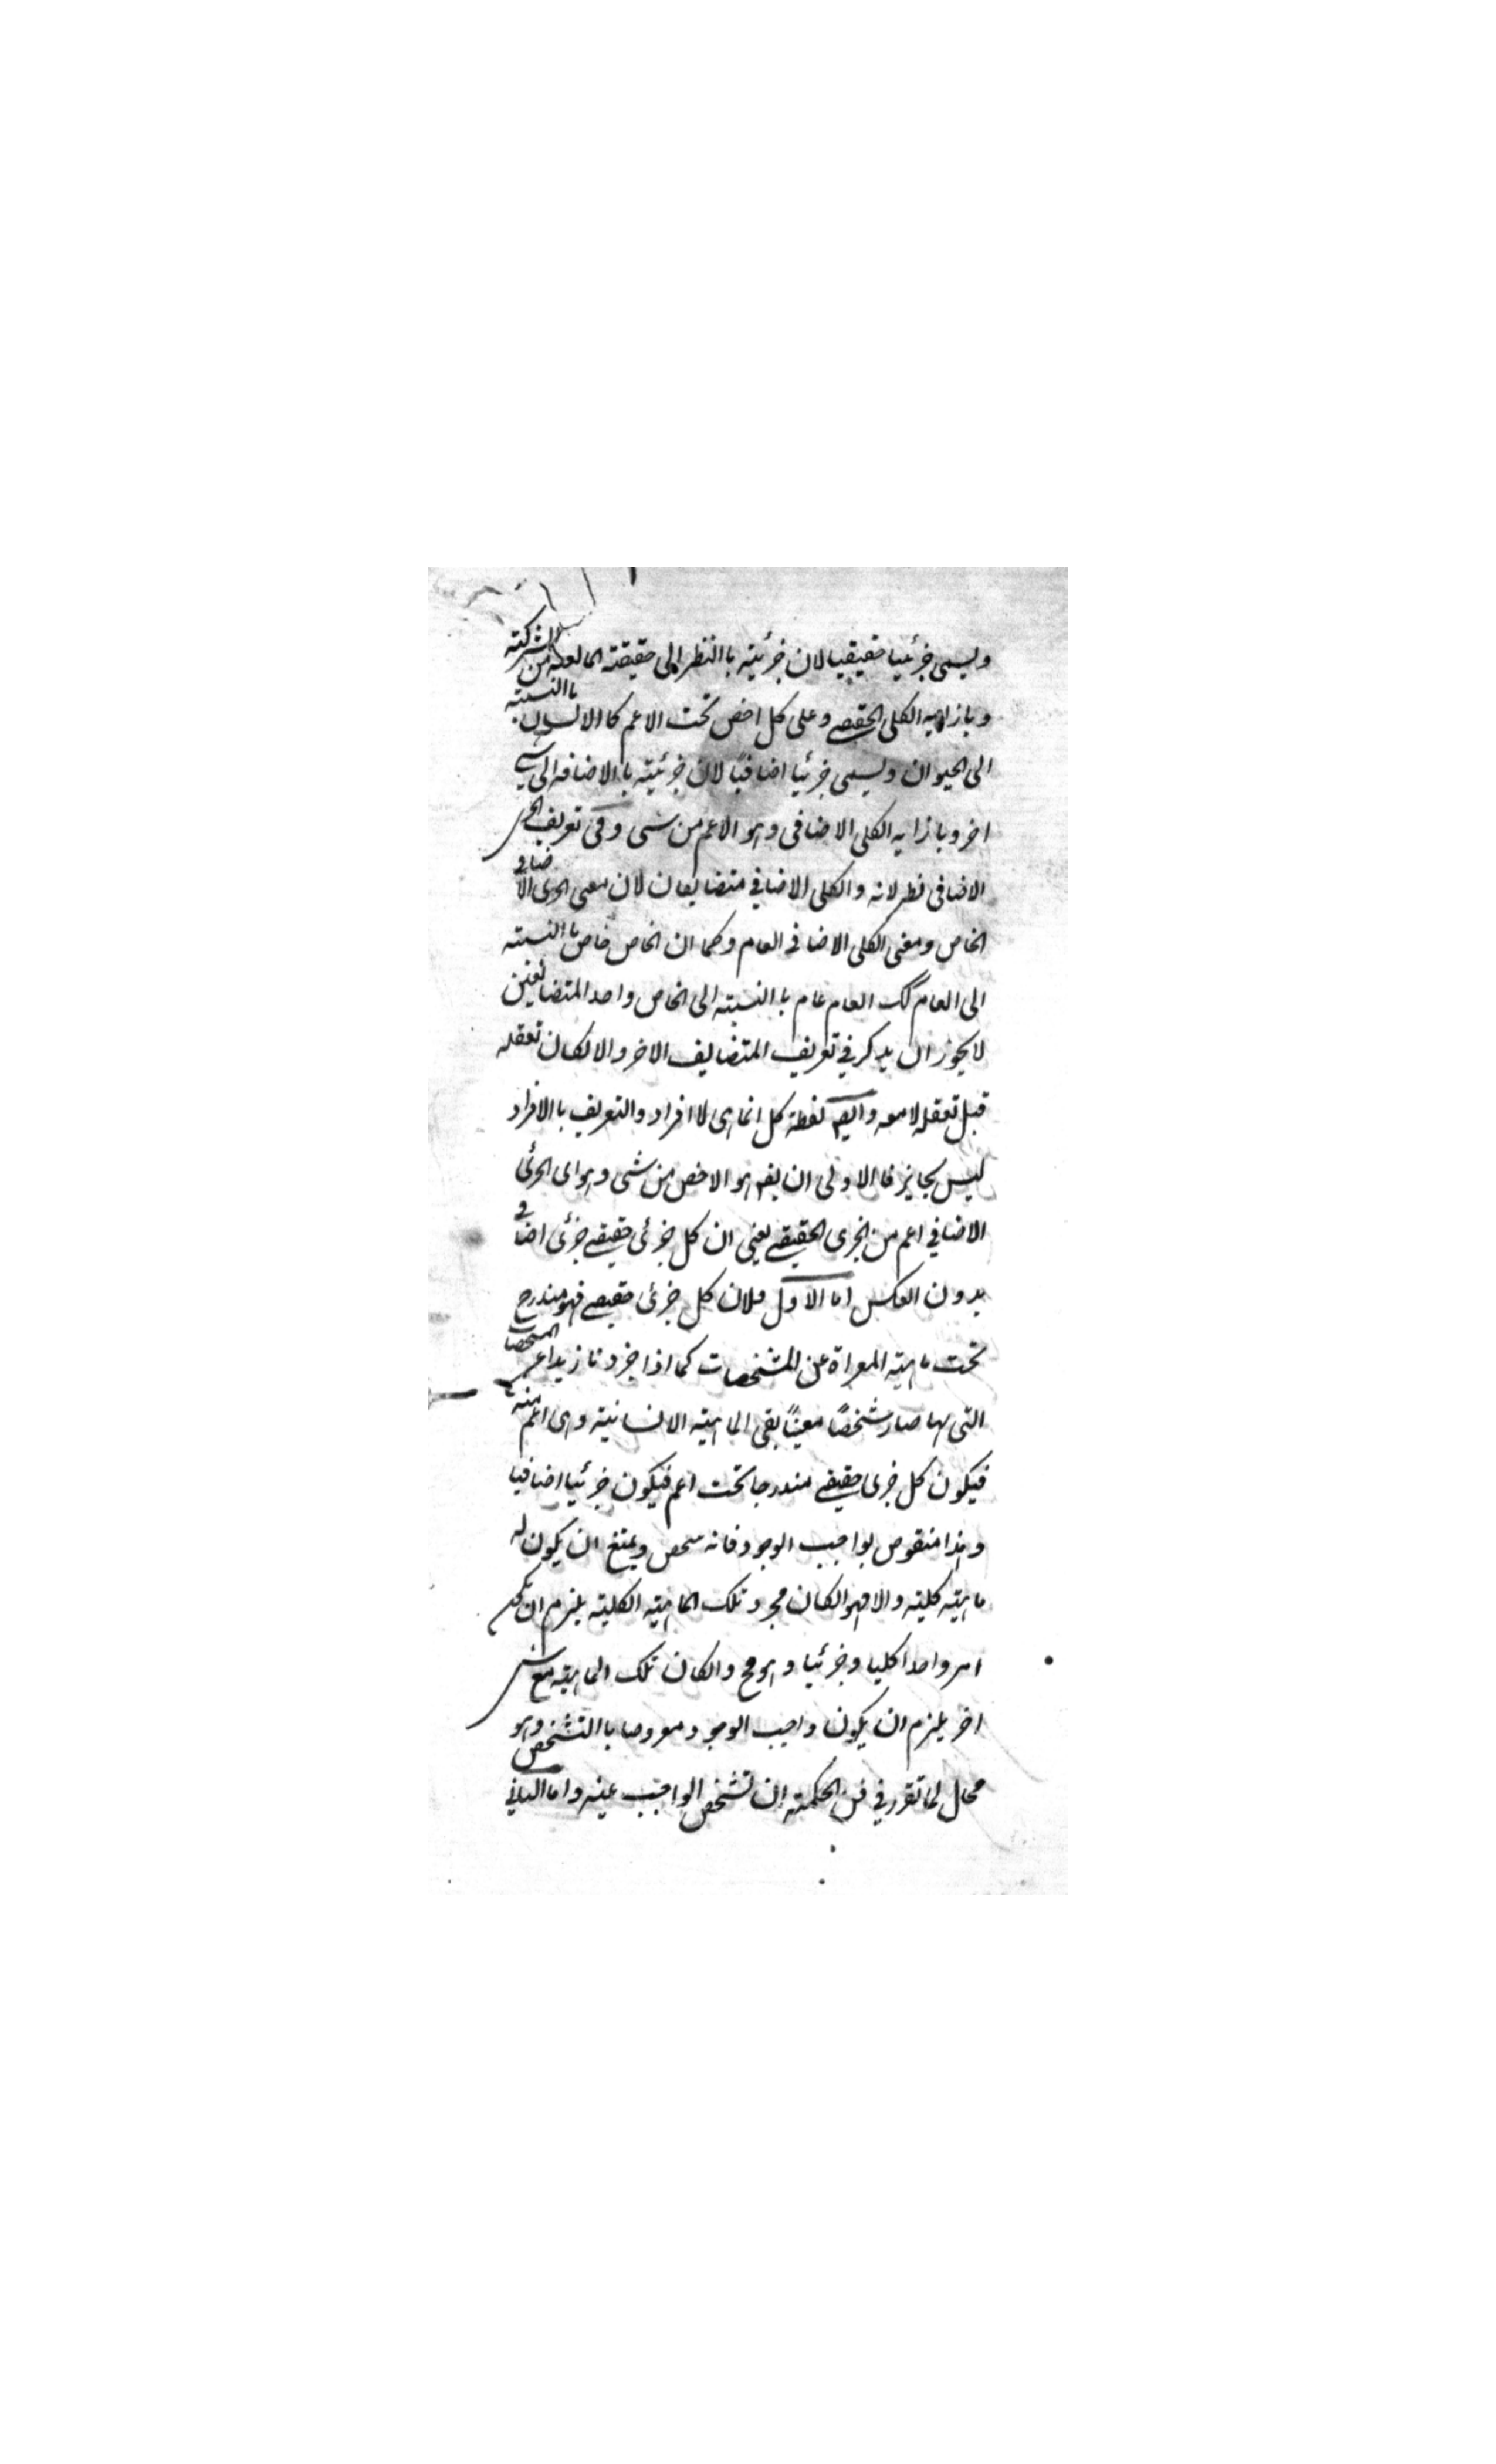 ويسمى جزئيا حقيقيا لان جزئيته باالنظر الى حقيقته المانعة من الشركته
وبازايه الكلى الحقيقے وعلى كل اخص تحت الاعم كا الانسان باالنسبته
الى الحيوان ويسمى جزئيا اضافيًا لان جزئيته باالاضافه الى شے
اخر وبازايه الكلى الاضافى وهو الاعم من شى وفى تعريف الجزى
الاضافى نظر لانه والكلى الاضافي متضايفان لان معنى الجزى الاضافى
الخاص ومعنى الكلى الاضافى العام وكما ان الخاص خاص باالنسبته
الى العام كك العام عام باالنسبته الى الخاص واحد المتضائفين
لا يجوز ان يذكر في تعريف المتضايف الاخر والا لكان تعقله
قبل تعقله لا معه وايضه لفظة كل انما هى للافراد والتعريف باالافراد
ليس بجايز فاالاولى ان يقم هو الاخص من شى وهو اى الجزئى
الاضافي اعم من الجزى الحقيقے يعنى ان كل جزئى حقيقے جزئى اضافى
بدون العكس اما الاول فلان كل جزئى حقيقے فهو مندرج
تحت ماهيته المعراة عن المشخصات كما اذا جردنا زيدا عن المشخصات
التى بها صار شخصًا معينًا بقى الماهيته الانسانيته وهى اعم منه
فيكون كل جزى حقيقے مندرجا تحت اعم فيكون جزئيا اضافيا
وهذا منقوض بواجب الوجود فانه شخص ويمتنع ان يكون له
ماهيته كليته والا فهو انكان مجرد تلك الماهيته الكليته يلزم ان يكون
امر واحدا كليا وجزئيا وهو مح وانكان تلك الماهيته مع شى
اخر يلزم ان يكون واجب الوجود معروضا باالتشخص وهو
محال لما تقرر في فن الحكمته ان تشخص الواجب عينه واما الثاني